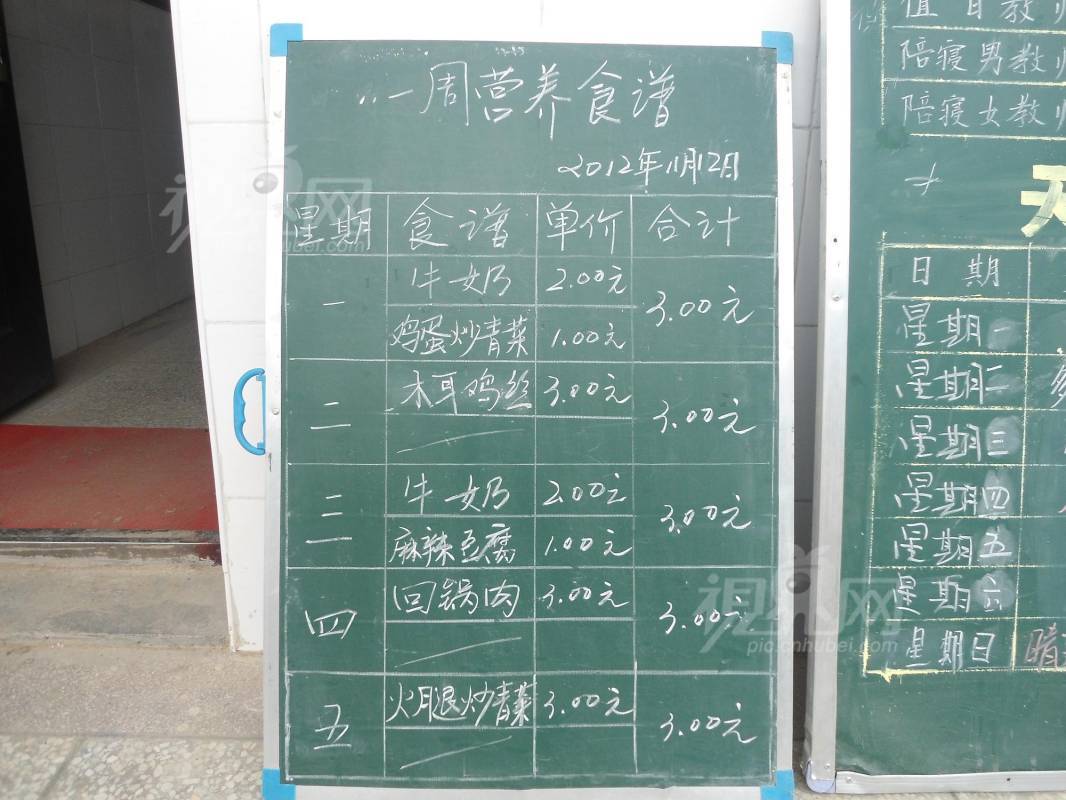 一周营养食谱
2012年11月12日
星期 食谱 单价 合计
一 牛奶 2.00元 3.00元
鸡蛋炒青菜 1.00元
二 木耳鸡丝 3.00元 3.00元
三 牛奶 2.00元 3.00元
麻辣豆腐 1.00元
四 回锅肉 3.00元 3.00元
五 火腿炒青菜 3.00元 3.00元
值日教师
陪寝男教师
陪寝女教师
日期
星期一
星期二
星期三
星期四
星期五
星期六
星期日 晴
视界网
视界网
pic.cnhubei.com